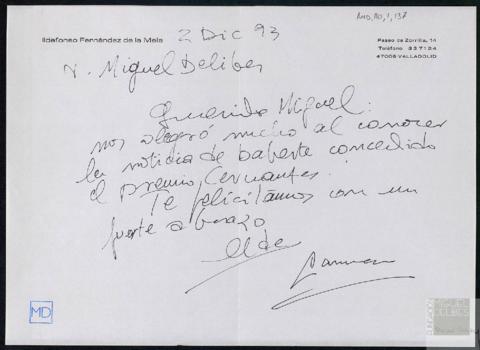 AMD,110,1,137
Ildefonso Fernández de la Mela
2 Dic 93
Paseo de Zorrilla, 14
Teléfono 337124
47006-VALLADOLID
D. Miguel Delibes
Querido Miguel:
nos alegró mucho al conocer
la noticia de haberte concedido
el premio Cervantes.
Te felicitamos con un
fuerte abrazo
Ilde
Carmen
MD
FUNDACIÓN
MIGUEL
DELIBES